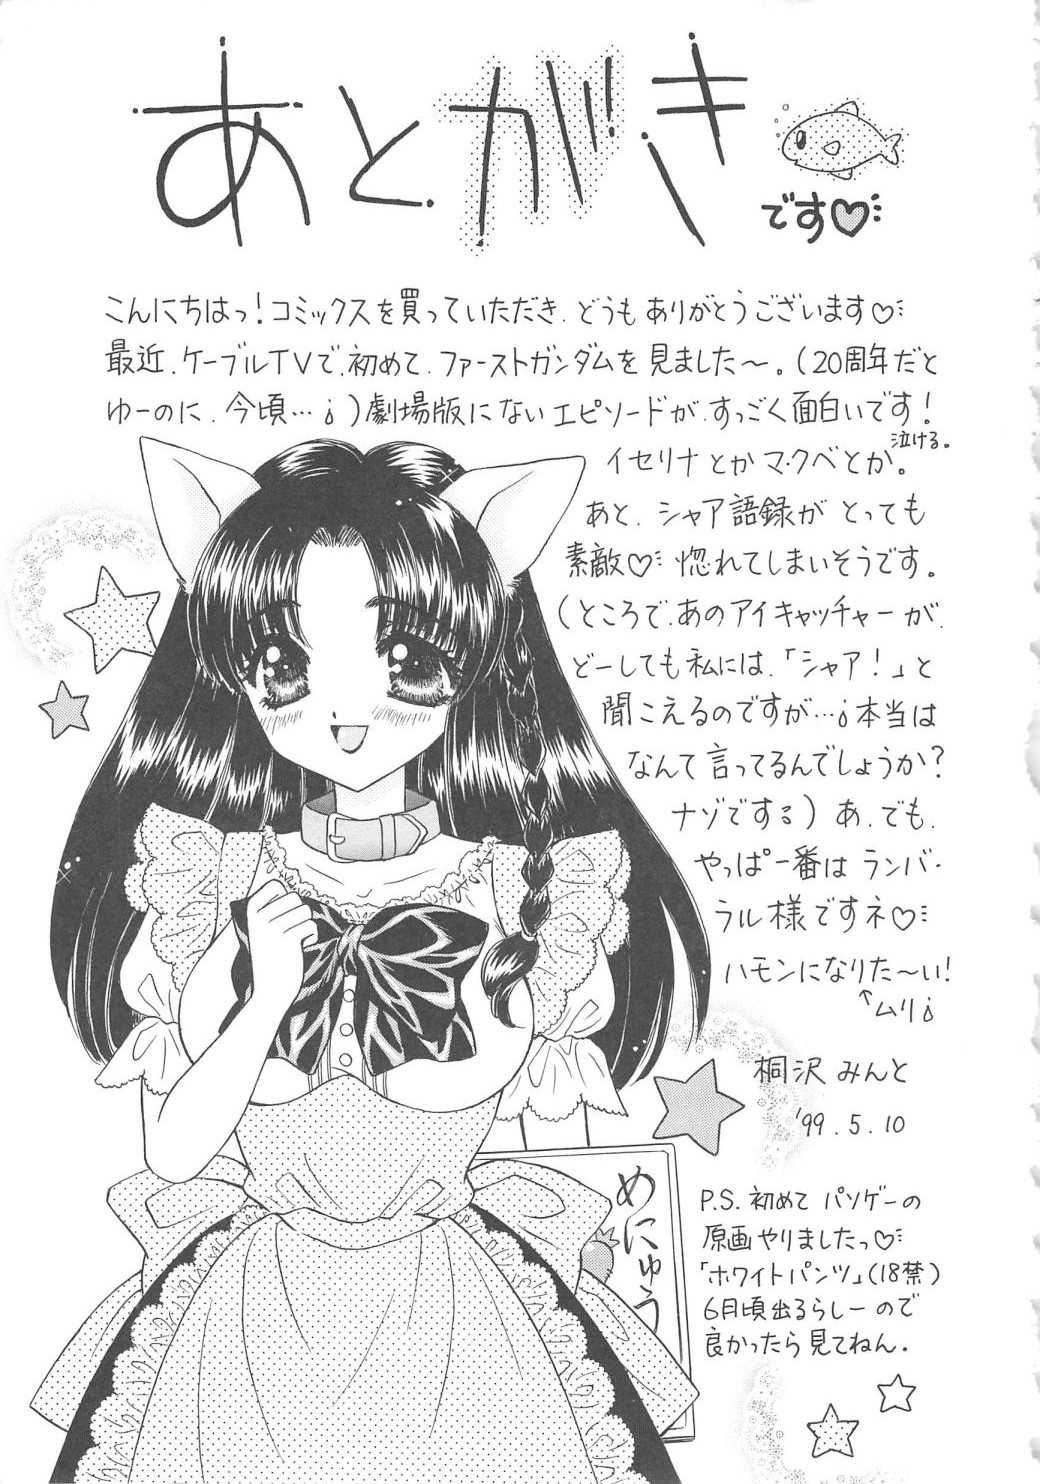 あとがき
です♡
こんにちはっ！コミックスを買っていただき、どうもありがとうございます♡
最近、ケーブルTVで、初めて、ファーストガンダムを見ました〜。(20周年だと
ゆーのに、今頃…；)劇場版にないエピソードが、すっごく面白いです！
イセリナとかマ・クベとか。
泣ける。
あと、シャア語録がとっても
素敵♡惚れてしまいそうです。
(ところで、あのアイキャッチャーが、
どーしても私には、「シャア！」と
聞こえるのですが…；本当は
なんて言ってるんでしょうか？
ナゾでする)あ、でも、
やっぱ一番はランバ・
ラル様ですネ♡
ハモンになりた〜い！
↑ムリ；
桐沢みんと
'99.5.10
P.S.初めてパソゲーの
原画やりましたっ♡
「ホワイトパンツ」(18禁)
6月頃出るらしーので
良かったら見てねん。
めにゅう